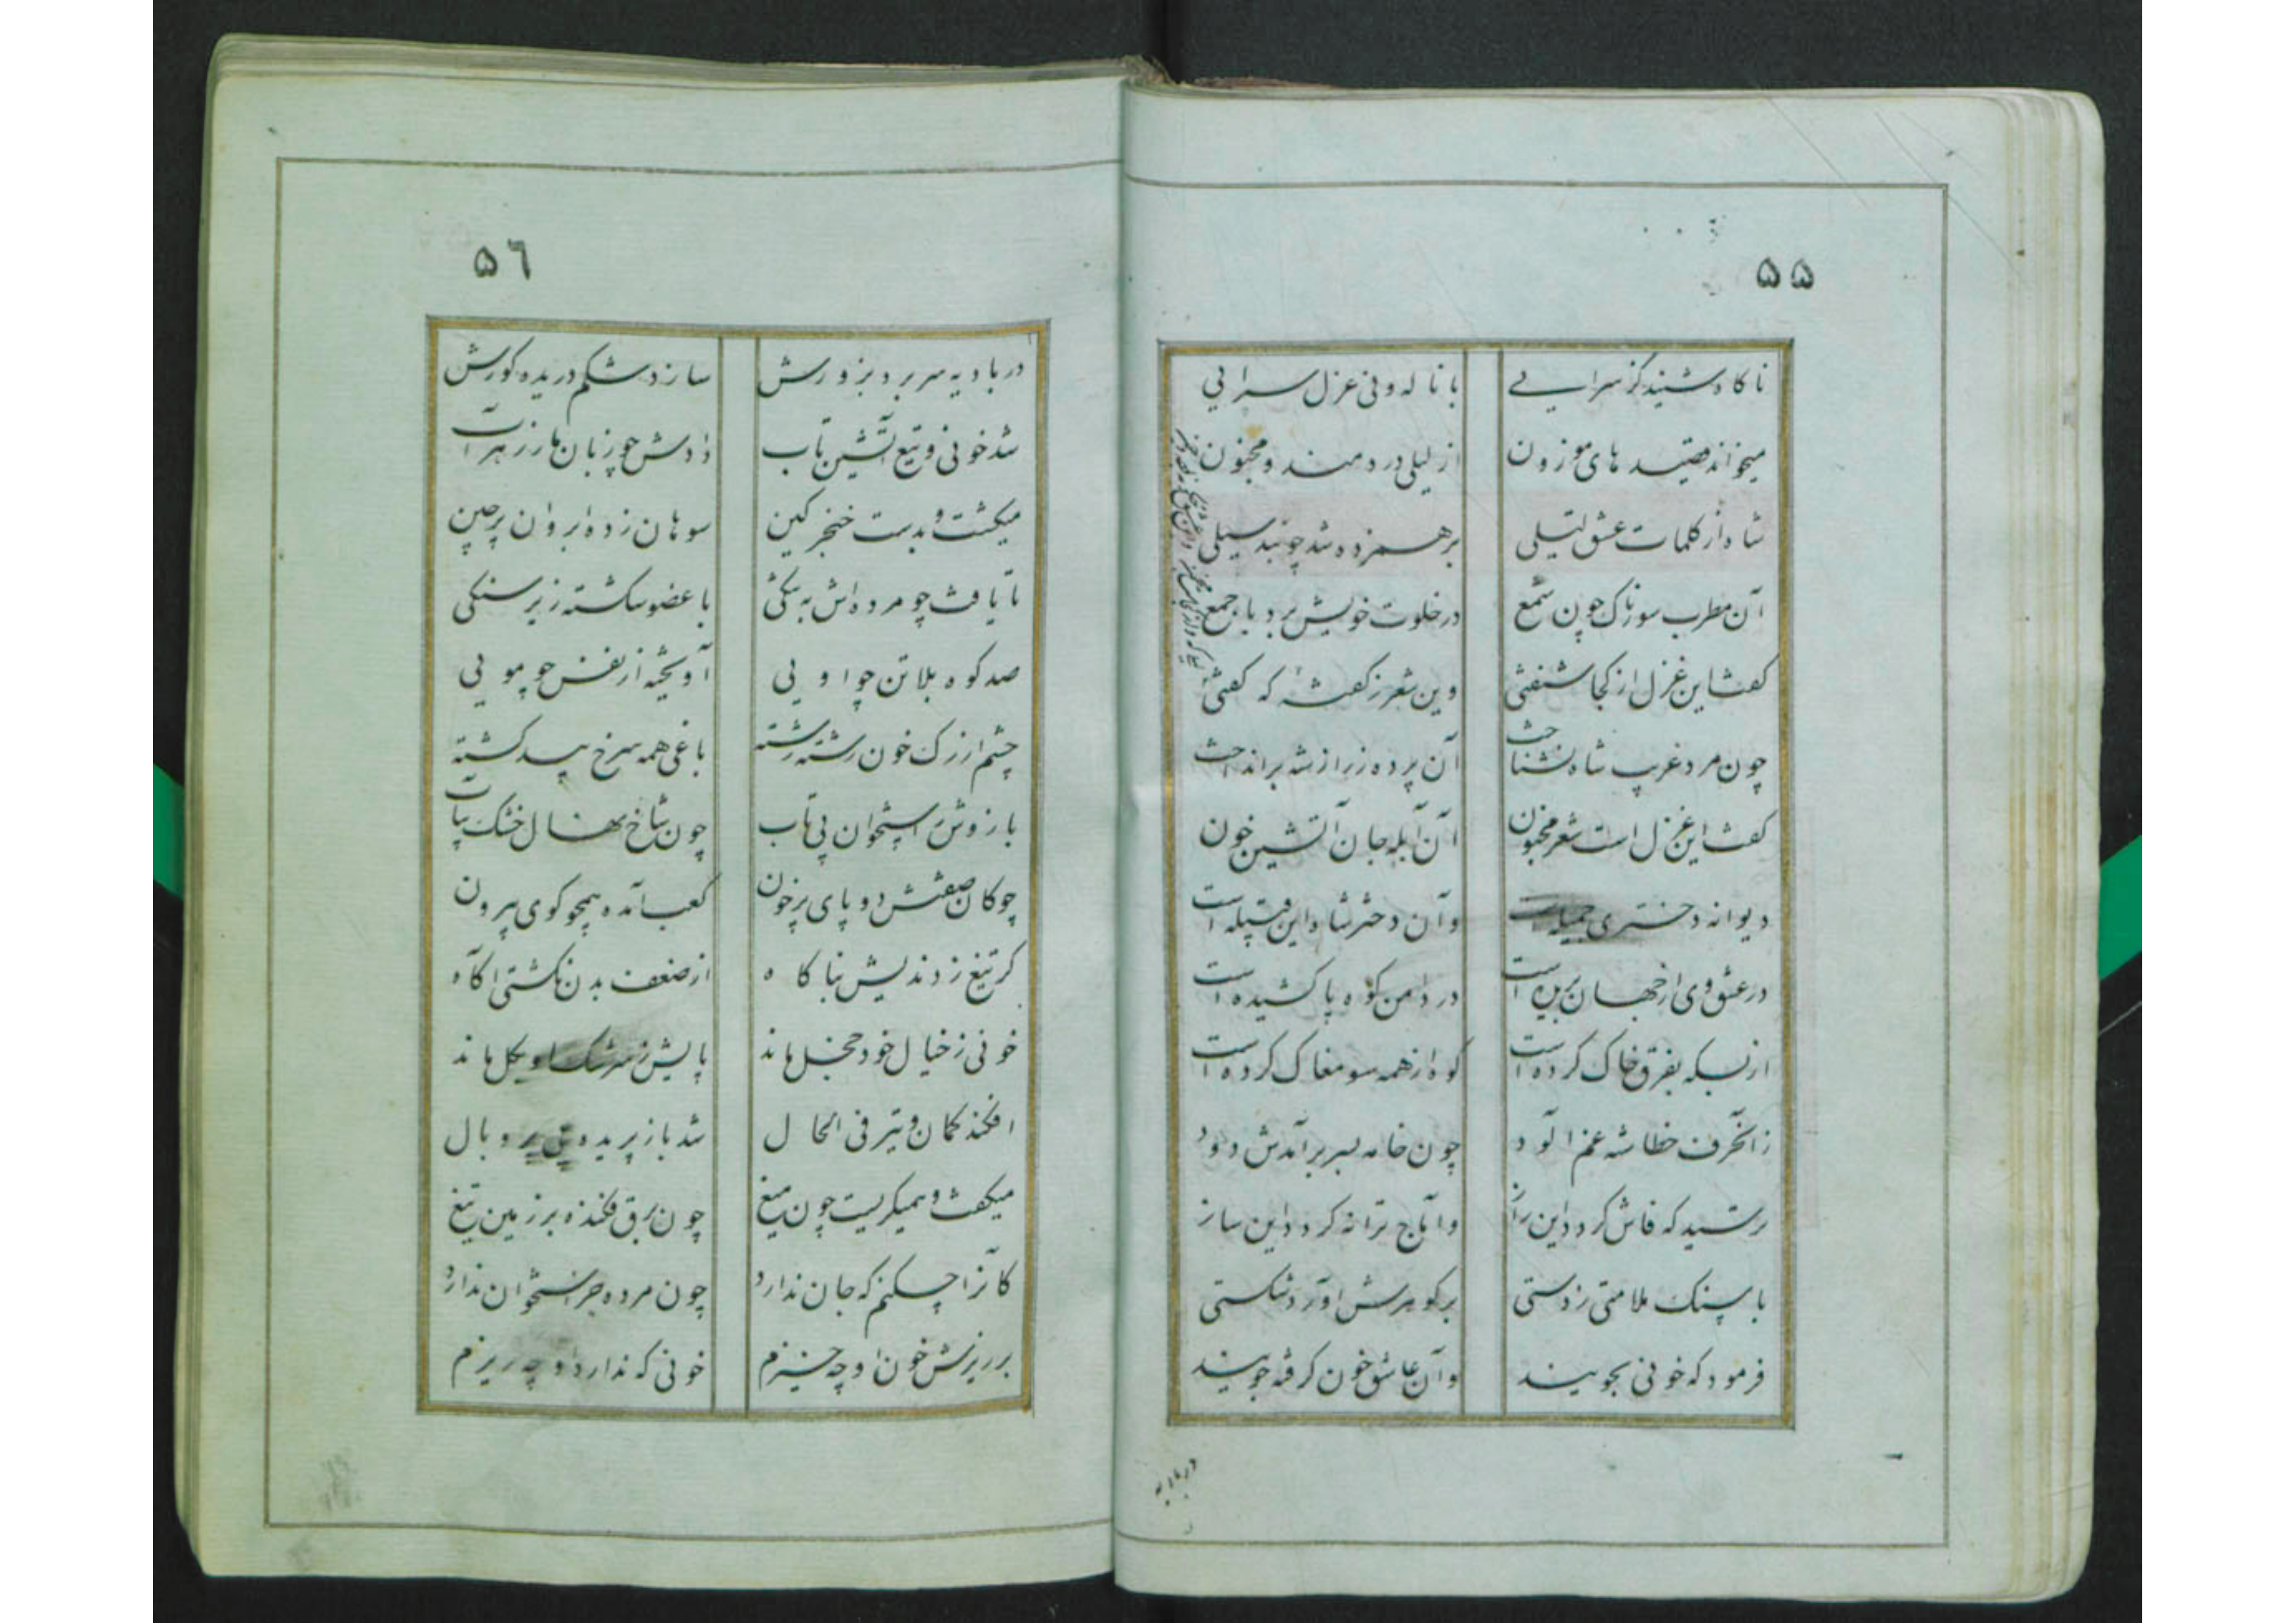 ۵۵
ناکاه شنید کز سرایی با ناله و نی غزل سرایی
میخواند قصیده های موزون از لیلی دردمند و مجنون
شاه از کلمات عشق لیلی برهم زده شد چو بید سیلی
آن مطرب سوزناک چون شمع در خلوت خویش برد با جمع
کفت این غزل از کجا شنفتی وین شعر ز کفته که کفتی
چون مرد غریب شاه نشناخت آن پرده ز راز شه برانداخت
کفت این غزل است شعر مجنون آن آبله جان آتشین خون
دیوانه دختری جمیله است وآن دختر شاه این قبیله است
در عشق وی از جهان بریده است در دامن کوه پا کشیده است
از بسکه بفرق خاک کرده است کوه از همه سو مغاک کرده است
زان حرف خطا شه غم آلود چون خامه بسر برآمدش دود
ترسید که فاش کردد این راز وآتاج ترانه کردد این ساز
با سنک ملامتی ز دستی بر کوهرش آورد شکستی
فرمود که خونی بجویند وآن عاشق خون کرفته جویند
در بادیه
۵٦
در بادیه سر برد بزورش سازد شکم دریده کورش
شد خونی و تیغ آتشین تاب دادش چو زبان مار زهرآب
میکشت و بدست خنجر کین سوهان زده ابروان پرچین
تا یافت چو مرده اش به تنکی با عضو شکسته زیر سنکی
صد کوه بلا تن چو اویی آویخته از نفس چو مویی
چشم از رک خون رشته رشته باغی همه سرخ بید کشته
بازوش ز استخوان بی تاب چون شاخ نهال خشک بی آب
چوکان صفتش دو پای پرخون کعب آمده همچو کوی بیرون
کر تیغ زدندیش بناکاه از ضعف بدن نکشتی آکاه
خونی ز خیال خود خجل ماند پایش ز سرشک او بکل ماند
افکند کمان و تیر فی الحال شد باز پریده بی پر و بال
میکفت و همیکریست چون میغ چون برق فکنده بر زمین تیغ
کانرا چکنم که جان ندارد چون مرده جز استخوان ندارد
بر ریزش خون او چه خیزم خونی که ندارد او چه ریزم